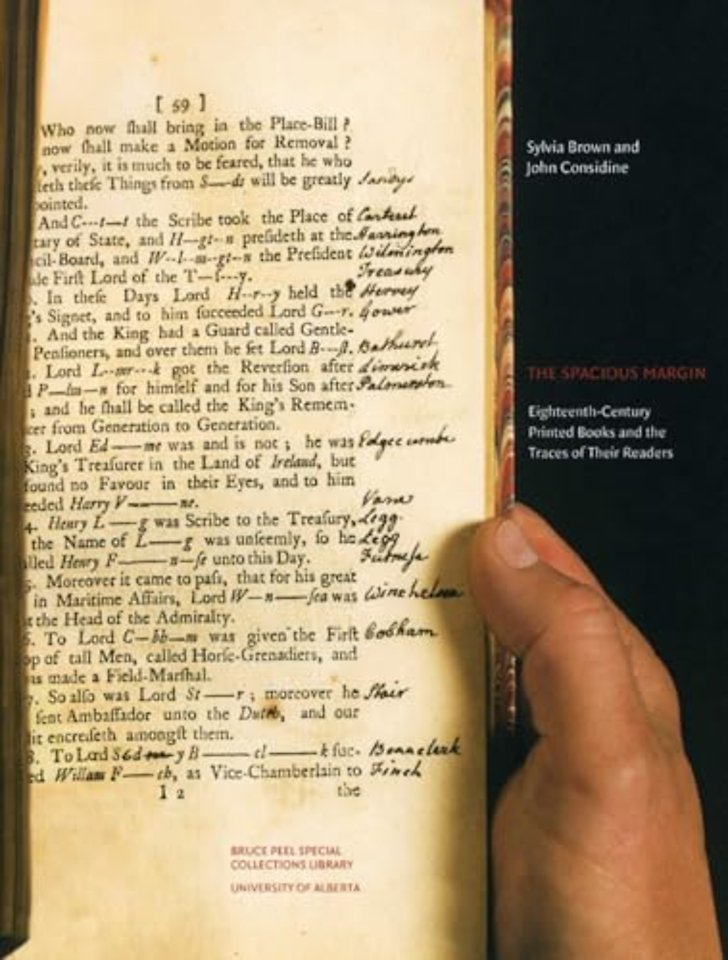 [ 59 ]
Who now ſhall bring in the Place-Bill ?
now ſhall make a Motion for Removal ?
, verily, it is much to be feared, that he who
leth theſe Things from S—ds will be greatly Sandys
pointed.
And C---t—t the Scribe took the Place of Carteret
tary of State, and H—gt--n preſideth at the Harrington
cil-Board, and W--l--m--gt--n the Preſident Wilmington
de Firſt Lord of the T—ſ---y. Treasury
. In theſe Days Lord H--r--y held the Hervey
's Signet, and to him ſucceeded Lord G---r. Gower
. And the King had a Guard called Gentle-
Penſioners, and over them he ſet Lord B---ſt. Bathurst
. Lord L--mr---k got the Reverſion after Limerick
P—lm—n for himſelf and for his Son after Palmerston
; and he ſhall be called the King's Remem-
cer from Generation to Generation.
3. Lord Ed——me was and is not ; he was Edgecumbe
King's Treaſurer in the Land of Ireland, but
found no Favour in their Eyes, and to him
eeded Harry V———ne. Vane
4. Henry L——g was Scribe to the Treaſury, Legg
the Name of L——g was unſeemly, ſo he Legg
lled Henry F———n—ſe unto this Day. Furnese
5. Moreover it came to paſs, that for his great
in Maritime Affairs, Lord W—n——ſea was Winchelsea
t the Head of the Admiralty.
6. To Lord C—bb—m was given the Firſt Cobham
op of tall Men, called Horſe-Grenadiers, and
as made a Field-Marſhal.
7. So alſo was Lord St——r ; moreover he Stair
ſent Ambaſſador unto the Dutch, and our
dit encreſeth amongſt them.
8. To Lord y B———cl———k ſuc- Beauclerk
ed Willam F——ch, as Vice-Chamberlain to Finch
I 2 the
BRUCE PEEL SPECIAL
COLLECTIONS LIBRARY
UNIVERSITY OF ALBERTA
Sylvia Brown and
John Considine
THE SPACIOUS MARGIN
Eighteenth-Century
Printed Books and the
Traces of Their Readers